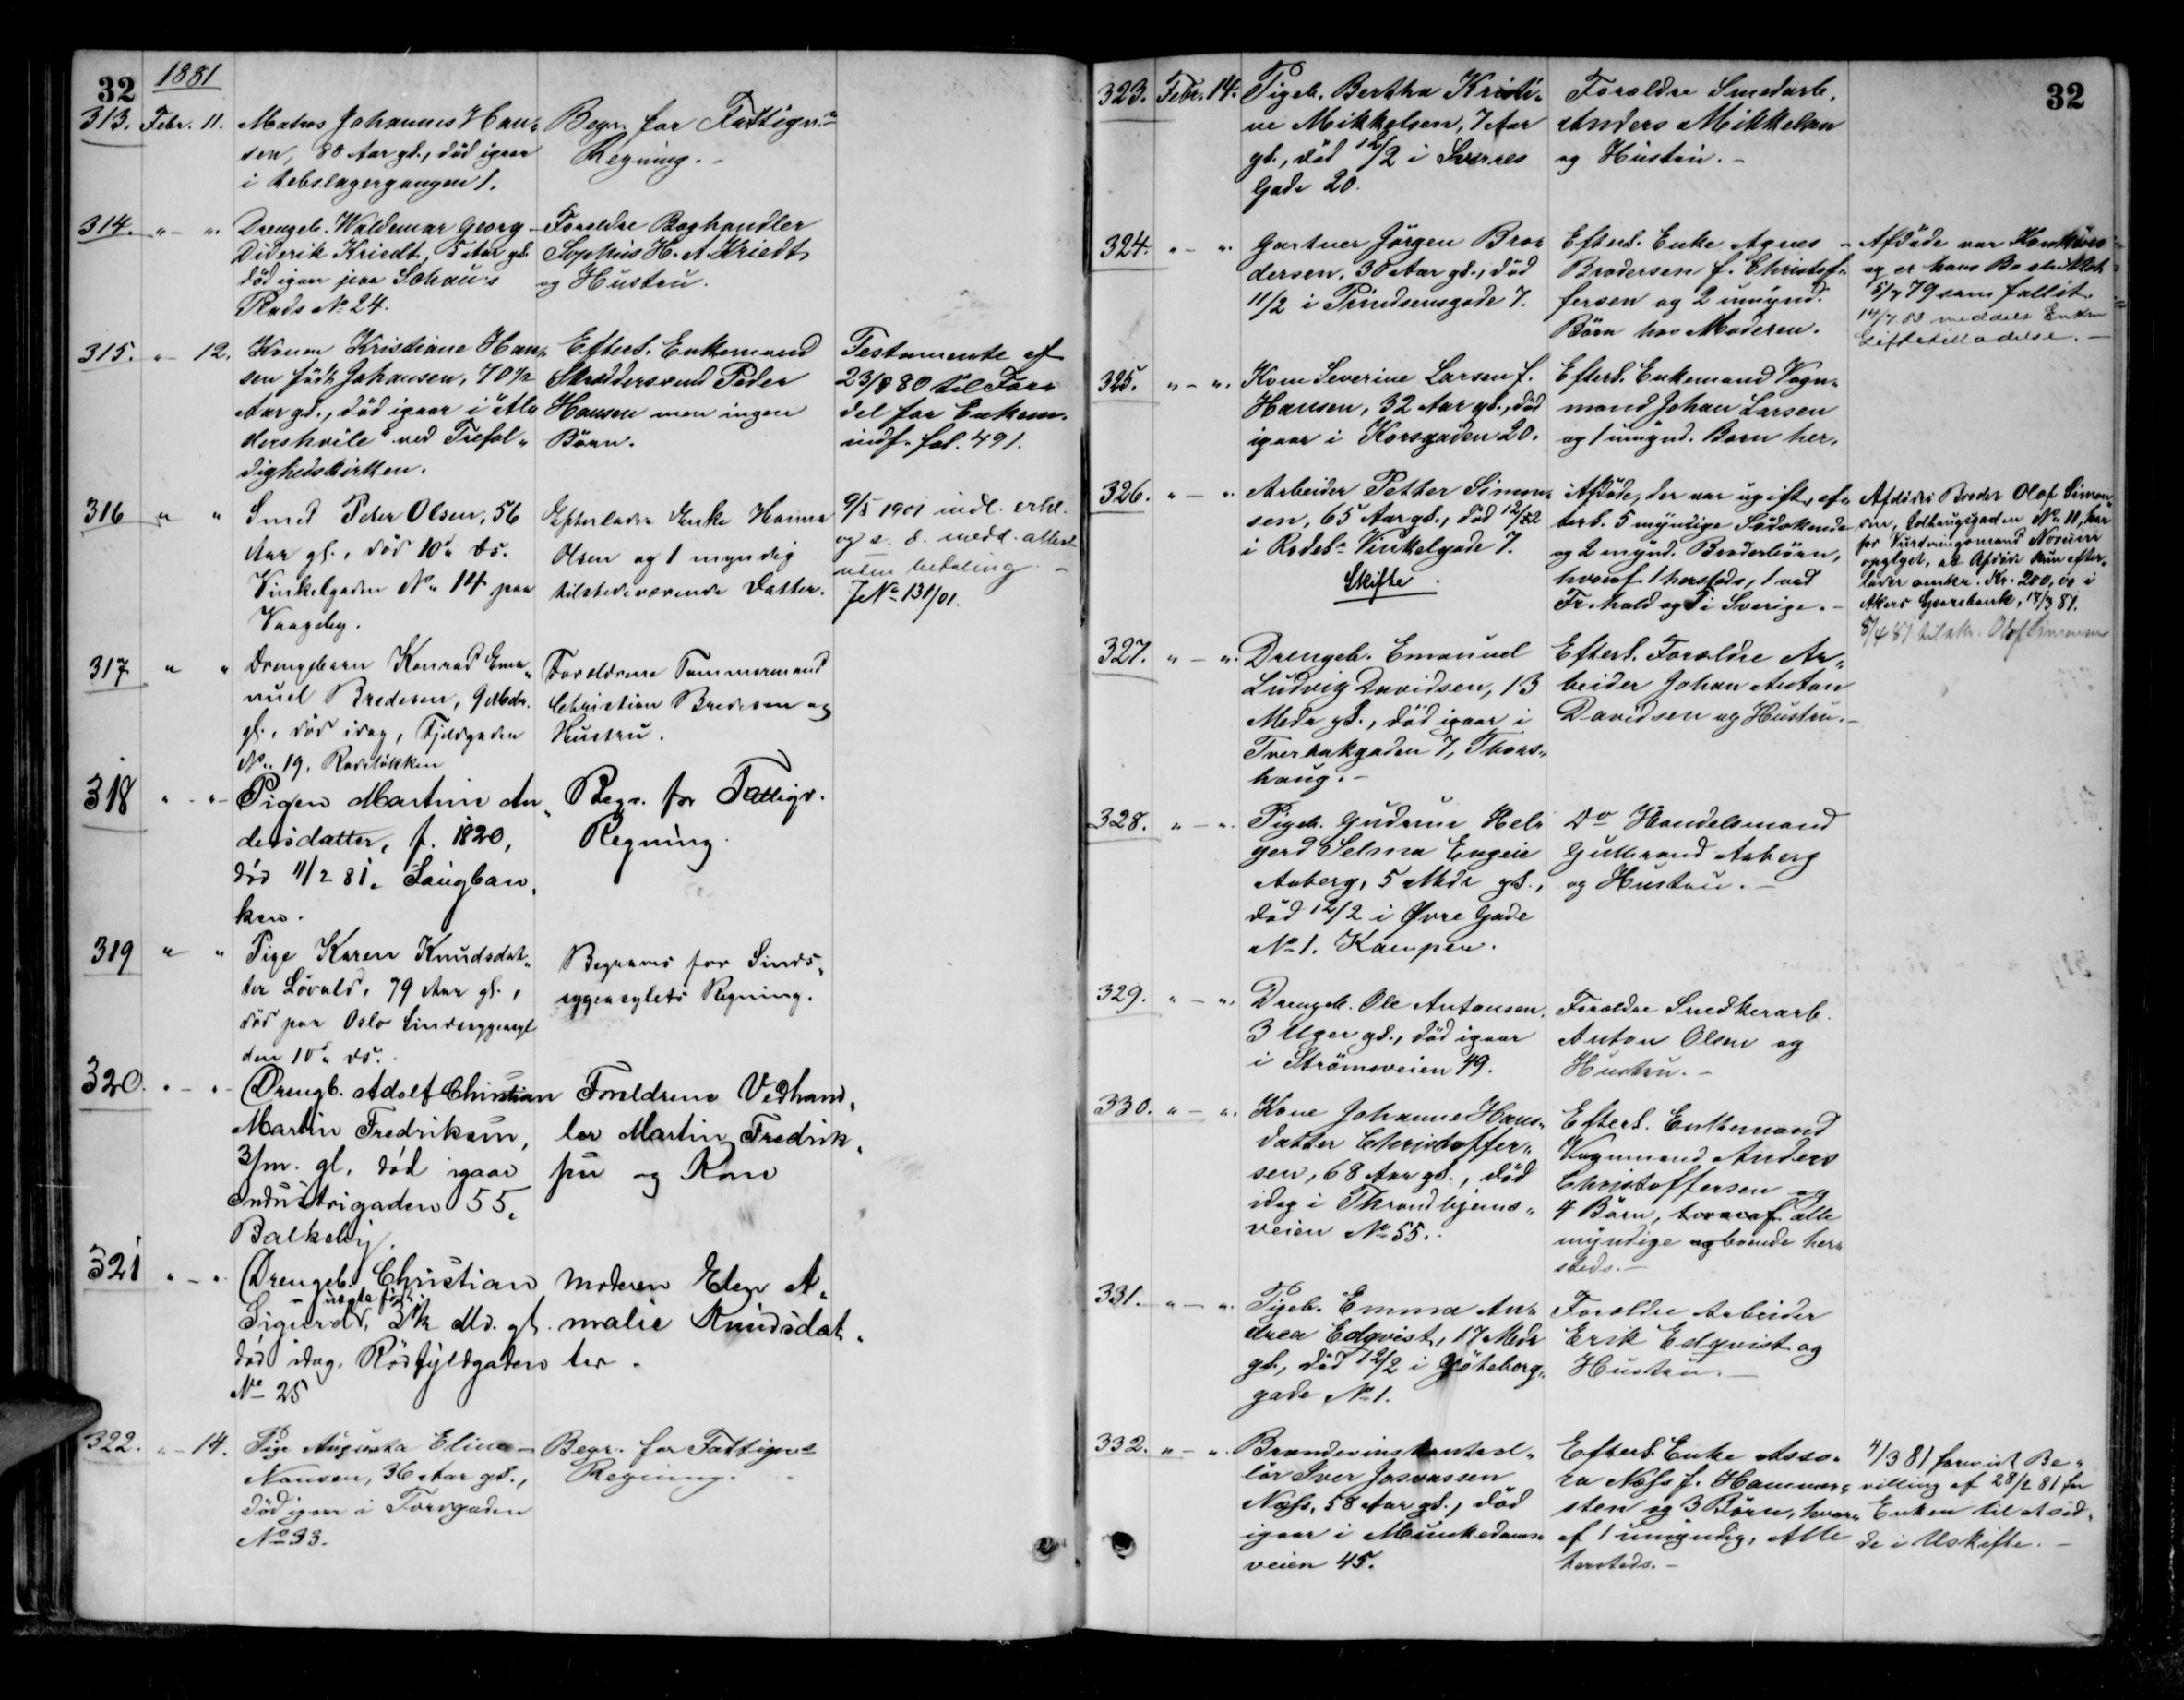 32
1881
313. Febr. 11. Matros Johannes Han-
sen, 80 Aar gl., död igaar
i Rebslagergangen 1.
Begr. for Fattigv.
Regning.-
314. " - " Drengeb. Waldemar Georg
Diderik Kriedt, 5 Aar gl.
död igaar paa Schous
Plads No 24.
Forældre Boghandler
Sophus H. A. Kriedt
og Hustru.
315. " - 12. Konen Kristiane Han-
sen födt Johansen, 70½
Aar gl., död igaar i "Al-
dershvile" ved Trefol-
dighedskirken.
Efterl. Enkemand
Skræddersvend Peder
Hansen men ingen
Börn.
Testamente af
23/8 80 til For-
del for Enkem.
indf. fol. 491.
316 " " Smed Peter Olsen, 56
Aar gl., död 10de ds.
Vinkelgaden No 14 paa
Vaageby.
Efterlader Enke Hanna
Olsen og 1 myndig
tilstedeværende Datter.
9/5 1901 indl. erkl.
og s. d. medd. attest
uden betaling. -
J No 131/01.
317 " " Drengebarn Konrad Ema-
nuel Bredesen, 9 Mdr.
gl., död idag, Fjeldgaden
No 19, Rodeløkken
Forældrene Tømmermand
Christian Bredesen og
Hustru.
318 " - " - Pigen Martine An-
dersdatter, f. 1820,
död 11/2 81. Saugban-
ken.
Begr. for Fattigv.
Regning.
319 " " Pige Karen Knudsdat-
ter Lövald, 79 Aar gl.,
död paa Oslo Sindssygeasyl
den 10de ds.
Begraves for Sinds-
sygeasylets Regning.
320. " - " - Drengb. Adolf Christian
Martin Fredriksen,
3/m. gl. död igaar
Industrigaden 55.
Balkeby.
Forældrene Vedhand-
ler Martin Fredrik-
sen og Kone
321 " - " Drengeb. Christian
- uægte født -
Sigurd, 2½ Md. gl.
död idag. Rödfyldgaden
No 25
Moderen Elen A-
malie Knudsdat-
ter.
322. " - 14. Pige Augusta Elina
Nansen, 36 Aar gl.,
död igaar i Torvgaden
No 33.
Begr. for Fattigvs
Regning.
32
323. Febr. 14. Pigeb. Bertha Kristi-
ne Mikkelsen, 7 Aar
gl., död 12/2 i Sverres
Gade 20.
Forældre Smedarb.
Anders Mikkelsen
og Hustru. -
324. " - " Gartner Jörgen Bro-
dersen, 30 Aar gl., död
11/2 i Prindsensgade 7.
Efterl. Enke Agnes
Brodersen f. Christof-
fersen og 2 umynd.
Börn hos Moderen.
Afdöde var
og er hans Bo sluttet
5/7 79 som fallit.
14/7 83 meddelt Enken
Giftetilladelse. -
325. " - " Kone Severine Larsen f.
Hansen, 32 Aar gl., död
igaar i Korsgaden 20.
Efterl. Enkemand Vogn-
mand Johan Larsen
og 1 umynd. Barn her.
326. " - " Arbeider Petter Simon-
sen, 65 Aar gl., död 12/2
i Rodel. Vinkelgade 7.
Skifte.
Afdöde, der var ugift, ef-
terl. 5 myndige Södskende
og 2 mynd. Broderbörn,
hvoraf 1 hersteds, 1 ved
Fr.hald og 5 i Sverige. -
Afdödes Broder Olof Simon-
sen, No 11, har
for Vurderingsmand
opgivet, at Afdöde kun efter-
lader omkr. Kr. 200,00 i
Akers Sparebank, 17/3 81.
8/4 81 tilsk. Olof Simonsen
327. " - " Drengeb. Emanuel
Ludvig Davidsen, 13
Mdr gl., död igaar i
Tverbakgaden 7, Thors-
haug. -
Efterl. Forældre Ar-
beider Johan Anton
Davidsen og Hustru. -
328. " - " Pigeb. Gudrun Hel-
gerd Selma Engeie
Aaberg, 5 Mdr gl.,
död 12/2 i Øvre Gade
No 1. Kampen.
Do Handelsmand
Gulbrand Aaberg
og Hustru. -
329. " - " Drengeb. Ole Antonsen,
3 Uger gl., död igaar
i Strömsveien 49.
Forældre Snedkerarb.
Anton Olsen og
Hustru. -
330. " - " Kone Johanne Hans-
datter Christoffer-
sen, 68 Aar gl., död
idag i Throndhjems-
veien No 55.
Efterl. Enkemand
Vognmand Anders
Christoffersen og
4 Börn, hvoraf alle
myndige og boende her-
steds. -
331. " - " Pigeb. Emma An-
drea Edqvist, 17 Mdr
gl., död 12/2 i Göteborg-
gade No 1.
Forældre Arbeider
Erik Edqvist og
Hustru. -
332. " - " Brændevinskontrol-
lör Iver Josvassen
Næss, 58 Aar gl., död
igaar i Munkedams-
veien 45.
Efterl. Enke Asso-
ra Næss f. Hammer-
sten og 3 Börn, hvor-
af 1 umyndig, Alle
hersteds. -
4/3 81 forevist Be-
villing af 28/2 81 for
Enken til at sid-
de i Uskifte. -